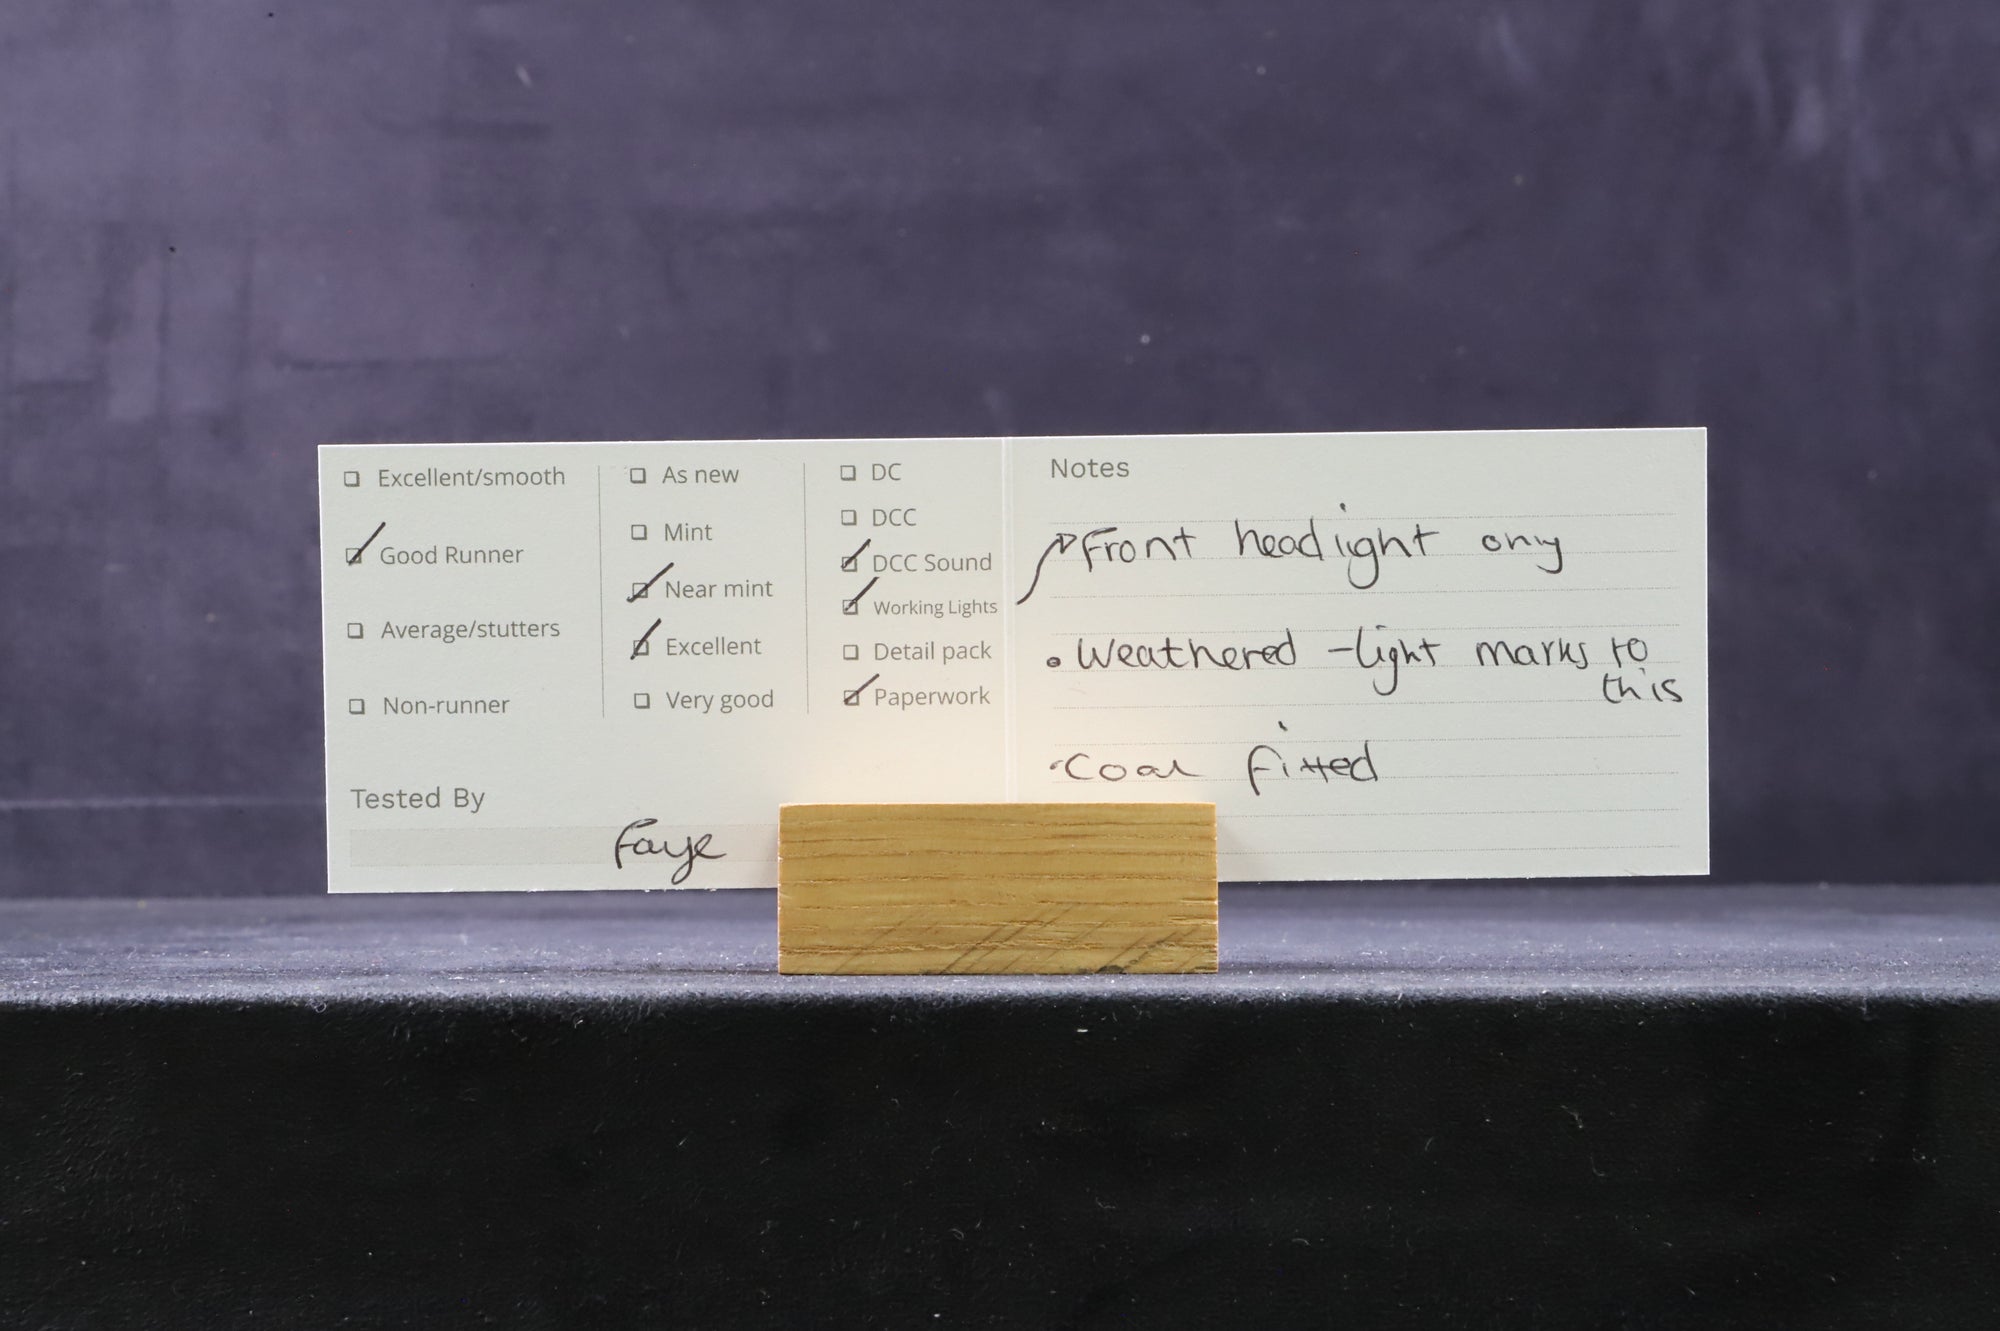 Excellent/smooth
Good Runner
Average/stutters
Non-runner
As new
Mint
Near mint
Excellent
Very good
DC
DCC
DCC Sound
Working Lights
Detail pack
Paperwork
Tested By
Faye
Notes
Front headlight only
• Weathered - light marks to
this
• Coal fitted